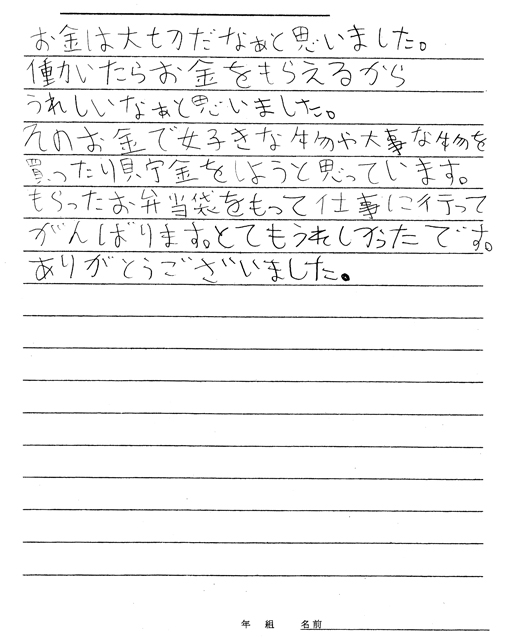 お金は大切だなぁと思いました。
働いたらお金をもらえるから
うれしいなぁと思いました。
そのお金で好きな物や大事な物を
買ったり貯金をしようと思っています。
もらったお弁当袋をもって仕事に行って
がんばります。とてもうれしかったです。
ありがとうございました。
年 組 名前